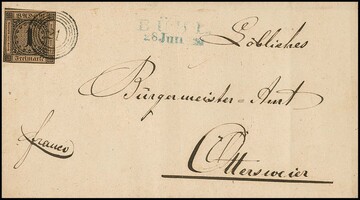 BÜHL
28 Jun
Freimarke
Löbliches
Bürgermeister-Amt
franco
Ottersweier